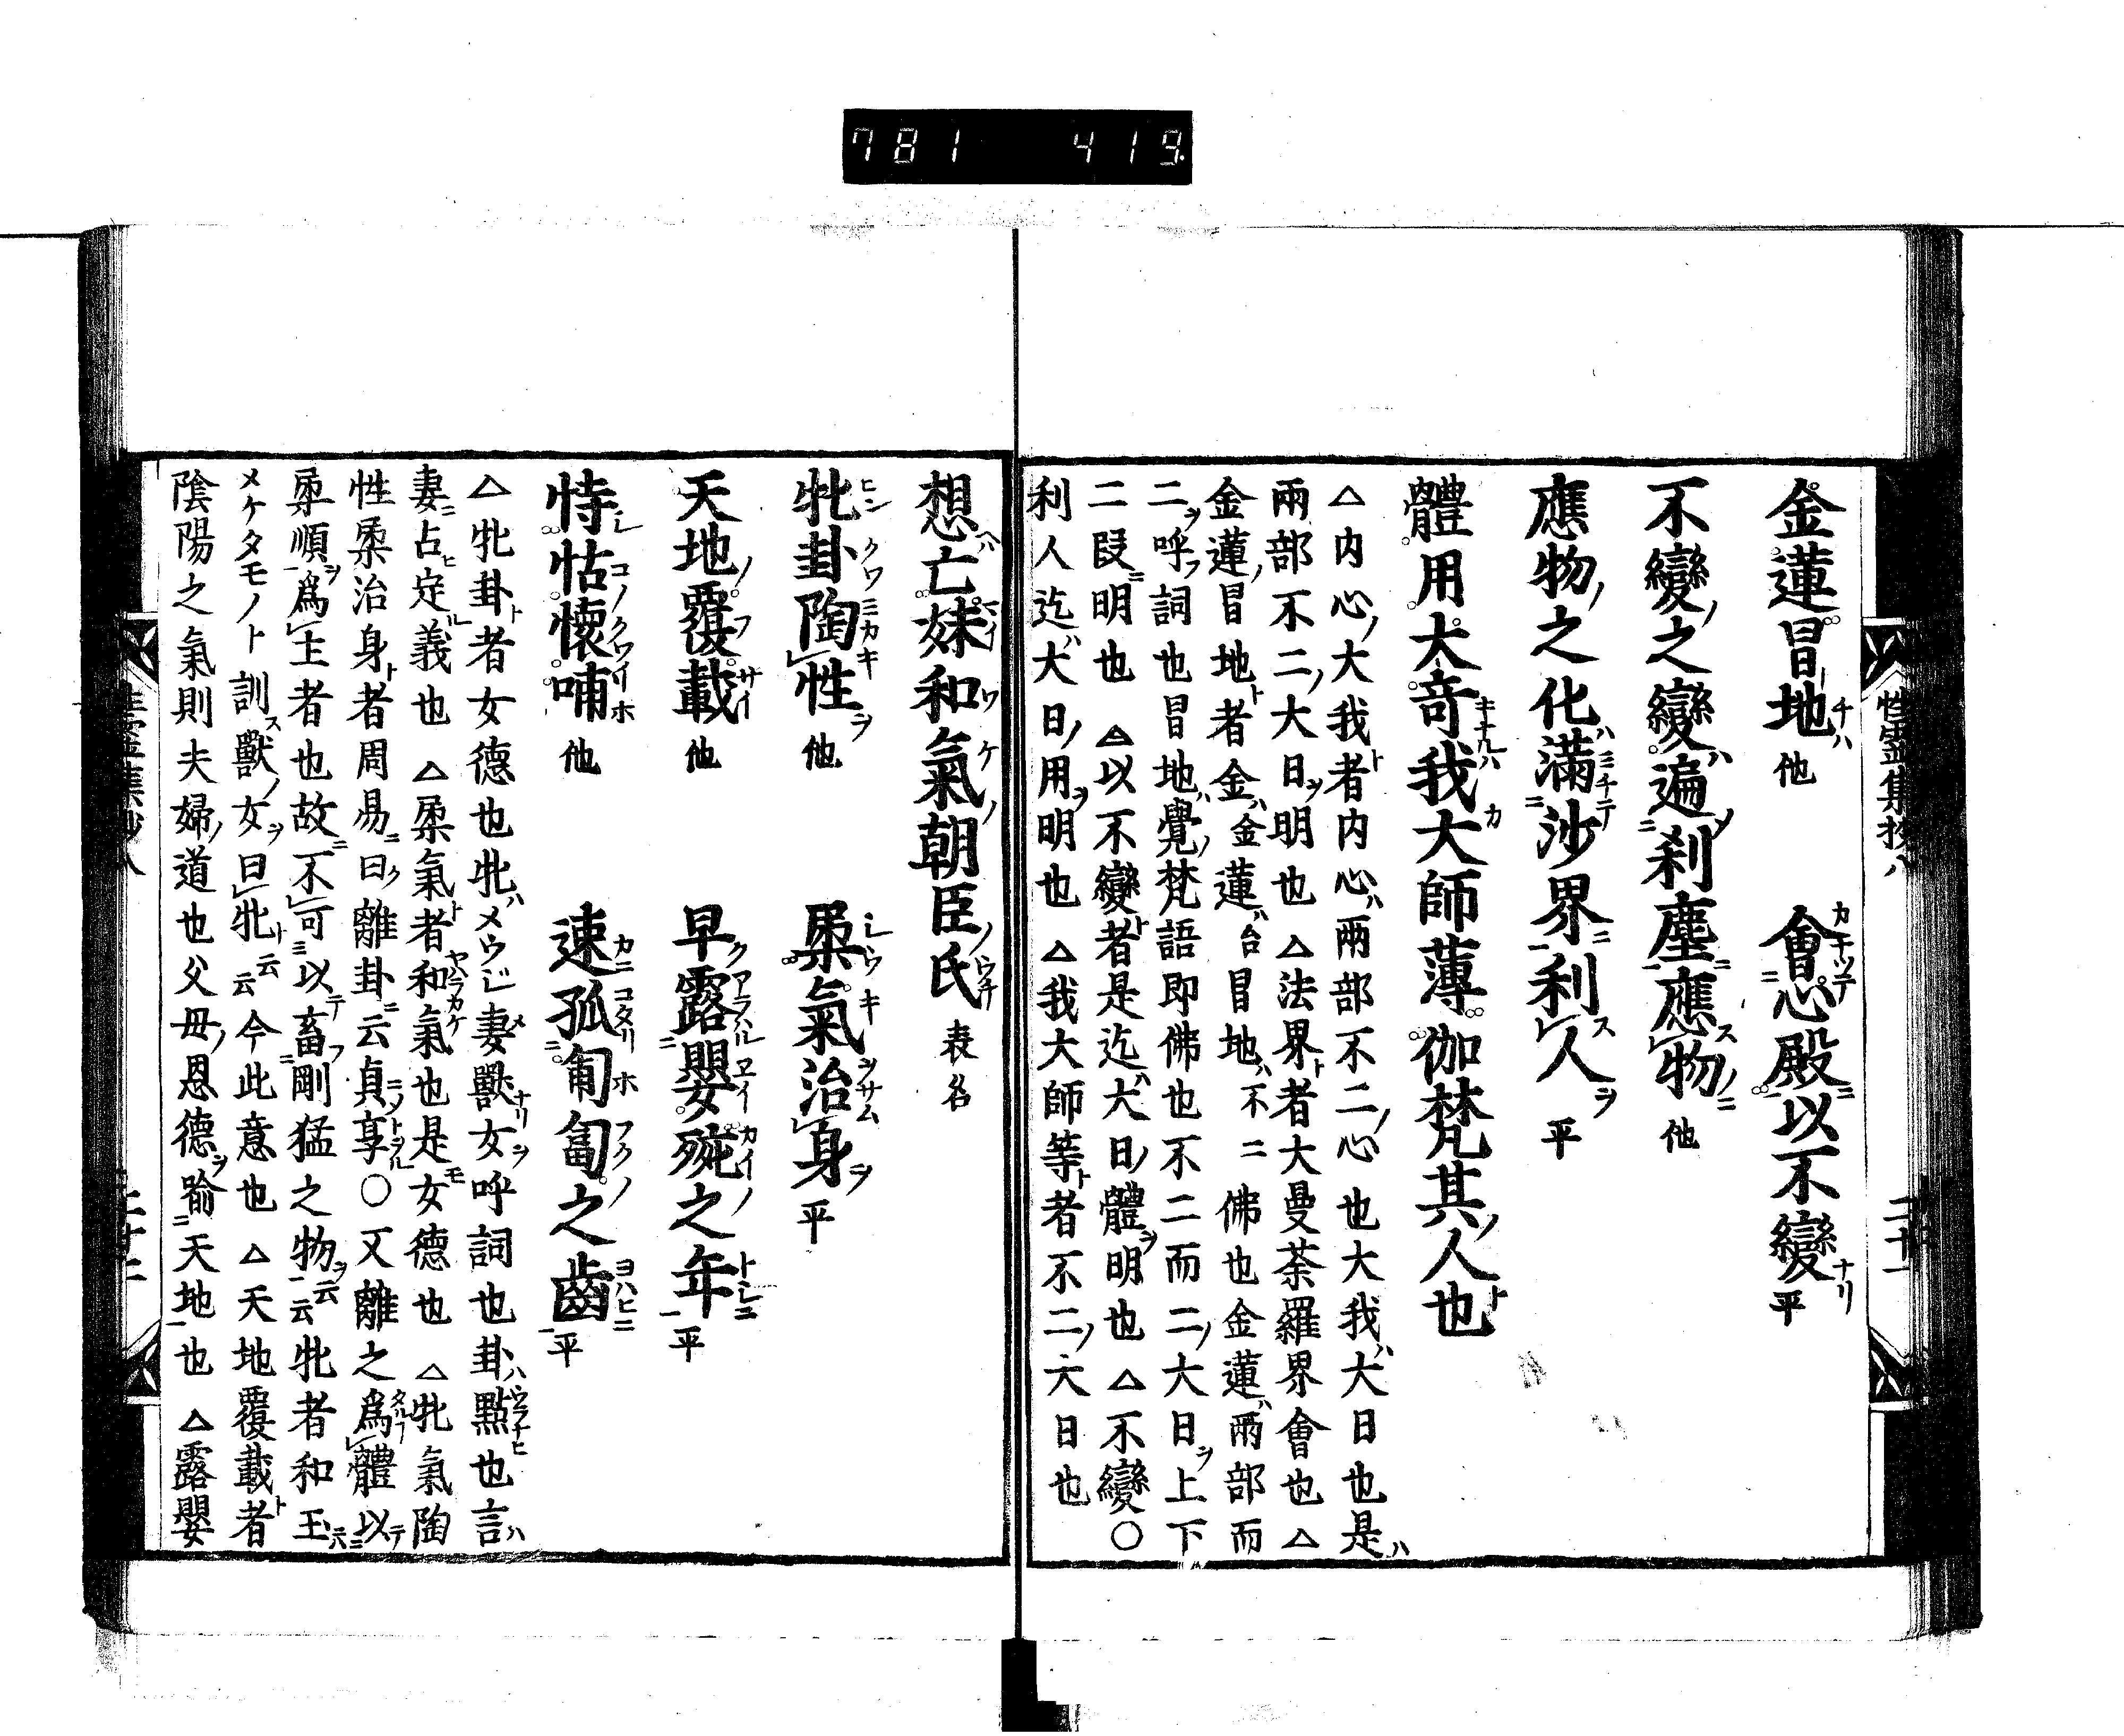 781 419
性靈集抄八
二十一
金蓮冒地 他 會心殿以不變 平
不變之變遍刹塵應物 他
應物之化滿沙界利人 平
體用大奇我大師薄伽梵其人也
△内心大我者内心兩部不二心也大我大日也是
兩部不二大日明也△法界者大曼荼羅界會也△
金蓮冒地者金金蓮台冒地不二佛也金蓮兩部而
二呼詞也冒地覺梵語即佛也不二而二大日上下
二段明也△以不變者是迄大日體明也△不變○
利人迄大日用明也△我大師等者不二大日也
想亡妹和氣朝臣氏 表名
牝卦陶性 他 柔氣治身 平
天地覆載 他 早露嬰㛂之年 平
恃怙懷哺 他 速孤匍匐之齒 平
△牝卦者女德也牝メウジ妻獸女呼詞也卦點也言
妻占定義也△柔氣者和氣也是女德也△牝氣陶
性柔治身者周易曰離卦云貞享○又離之爲體以
柔順爲主者也故不可以畜剛猛之物云云牝者和玉
メケタモノト訓獸女曰牝云云今此意也△天地覆載者
陰陽之氣則夫婦道也父母恩德喻天地也△露嬰